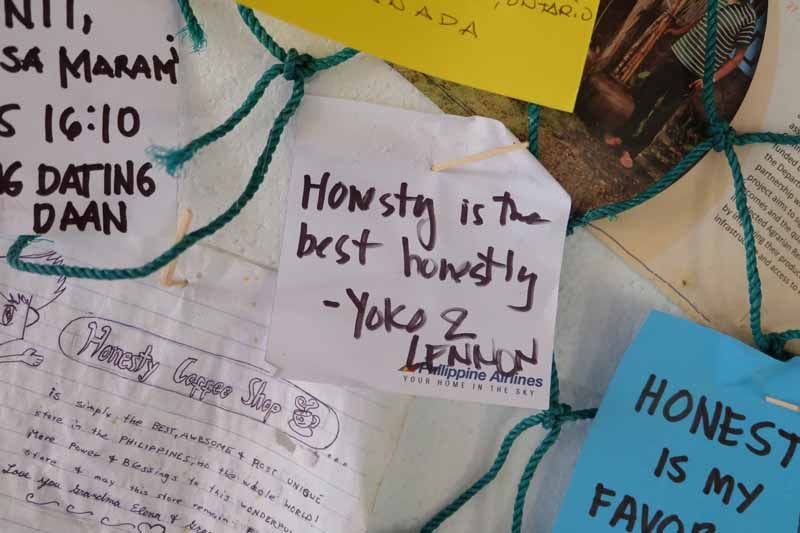 SA MARAMI
S 16:10
G DATING
DAAN
ONTARIO
NADA
Honesty is the
best honestly
-Yoko 2
LENNON
Philippine Airlines
YOUR HOME IN THE SKY
Honesty Coffee Shop
is simply the BEST, AWESOME & MOST UNIQUE
store in the PHILIPPINES, no the whole WORLD!
More Power & Blessings to this wonderful
store & may this store remain
Love you Grandma Elena &
HONEST
IS MY
FAVOR
funded
the Depar
partnership w
project aims to
comes and the qu
Agrarian Re
by improving their produc
infrastructure and access to